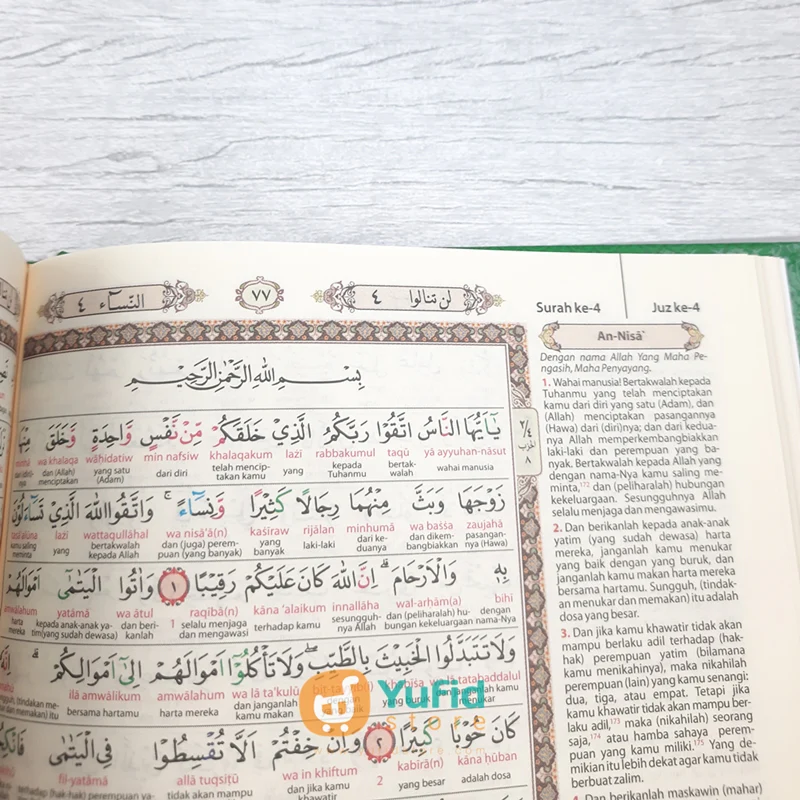 النّسآء ٤
٧٧
لن تنالوا ٤
Surah ke-4
Juz ke-4
بِسْمِ اللهِ الرَّحْمٰنِ الرَّحِيْمِ
يٰٓاَيُّهَا النَّاسُ اتَّقُوْا رَبَّكُمُ الَّذِيْ خَلَقَكُمْ مِّنْ نَّفْسٍ وَّاحِدَةٍ وَّخَلَقَ
yā ayyuhan-nāsut taqū rabbakumul lażī khalaqakum min nafsiw wāḥidatiw wa khalaqa
wahai manusia bertak-walah kepada Tuhanmu yang telah mencip-takan kamu dari diri yang satu (Adam) dan (Allah) menciptakan
زَوْجَهَا وَبَثَّ مِنْهُمَا رِجَالًا كَثِيْرًا وَّنِسَاۤءً ۚ وَاتَّقُوا اللهَ الَّذِيْ تَسَاۤءَلُوْنَ
zaujahā wa baṡṡa minhumā rijālan kaṡīraw wa nisā'ā(n) wattaqullāhal lażī
pasangan-nya (Hawa) dan dikem-bangbiakkan dari ke-duanya laki-laki yang banyak dan (juga) perem-puan (yang banyak) bertakwalah kepada Allah yang kamu saling meminta
بِهٖ وَالْاَرْحَامَ ۗ اِنَّ اللهَ كَانَ عَلَيْكُمْ رَقِيْبًا ١ وَاٰتُوا الْيَتٰمٰٓى اَمْوَالَهُمْ
bihī wal-arḥām(a) innallāha kāna 'alaikum raqībā(n) wa ātul yatāmā amwālahum
dengan nama-Nya dan (peliharalah) hu-bungan kekeluargaan sesungguh-nya Allah terhadap kamu selalu menjaga dan mengawasi 1 dan beri-kanlah kepada anak-anak ya-tim(yang sudah dewasa) harta mereka
وَلَا تَتَبَدَّلُوا الْخَبِيْثَ بِالطَّيِّبِ ۖ وَلَا تَأْكُلُوْٓا اَمْوَالَهُمْ اِلٰٓى اَمْوَالِكُمْ ۗ اِنَّهٗ
wa lā tatabaddalul wa lā ta'kulū amwālahum ilā amwālikum
dan janganlah kamu menukar yang buruk dengan yang baik dan janganlah kamu makan harta mereka bersama hartamu
كَانَ حُوْبًا كَبِيْرًا ٢ وَاِنْ خِفْتُمْ اَلَّا تُقْسِطُوْا فِى الْيَتٰمٰى
kāna ḥūban kabīrā(n) wa in khiftum allā tuqsiṭū fil-yatāmā
adalah dosa yang besar 2 dan jika kamu khawatir tidak akan mampu
٣/٤
الحزب
٨
An-Nisā`
Dengan nama Allah Yang Maha Pe-
ngasih, Maha Penyayang.
1. Wahai manusia! Bertakwalah kepada
Tuhanmu yang telah menciptakan
kamu dari diri yang satu (Adam), dan
(Allah) menciptakan pasangannya
(Hawa) dari (diri)nya; dan dari kedua-
nya Allah memperkembangbiakkan
laki-laki dan perempuan yang ba-
nyak. Bertakwalah kepada Allah yang
dengan nama-Nya kamu saling me-
minta,172 dan (peliharalah) hubungan
kekeluargaan. Sesungguhnya Allah
selalu menjaga dan mengawasimu.
2. Dan berikanlah kepada anak-anak
yatim (yang sudah dewasa) harta
mereka, janganlah kamu menukar
yang baik dengan yang buruk, dan
janganlah kamu makan harta mereka
bersama hartamu. Sungguh, (tindak-
an menukar dan memakan) itu adalah
dosa yang besar.
3. Dan jika kamu khawatir tidak akan
mampu berlaku adil terhadap (hak-
hak) perempuan yatim (bilamana
kamu menikahinya), maka nikahilah
perempuan (lain) yang kamu senangi:
dua, tiga, atau empat. Tetapi jika
kamu khawatir tidak akan mampu ber-
laku adil,173 maka (nikahilah) seorang
saja,174 atau hamba sahaya perem-
puan yang kamu miliki.175 Yang de-
mikian itu lebih dekat agar kamu tidak
berbuat zalim.
4. Dan berikanlah maskawin (mahar)
YuFid
store